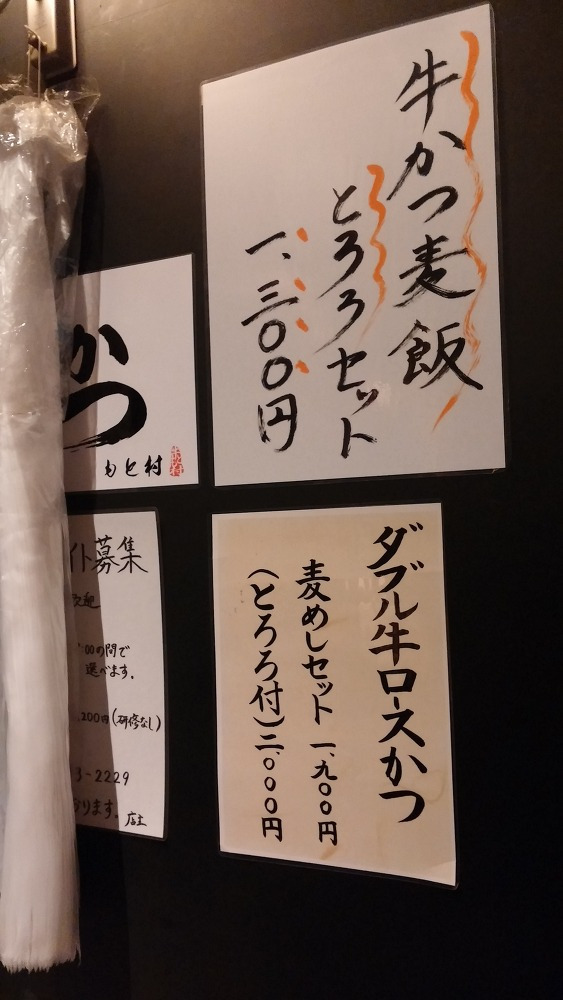 牛かつ麦飯
とろろセット
一、三〇〇円
かつ
もと村
ダブル牛ロースかつ
麦めしセット 一、九〇〇円
（とろろ付）二、〇〇〇円
イト募集
歓迎
:00の間で
選べます。
,200円（研修なし）
3-2229
おります。店主